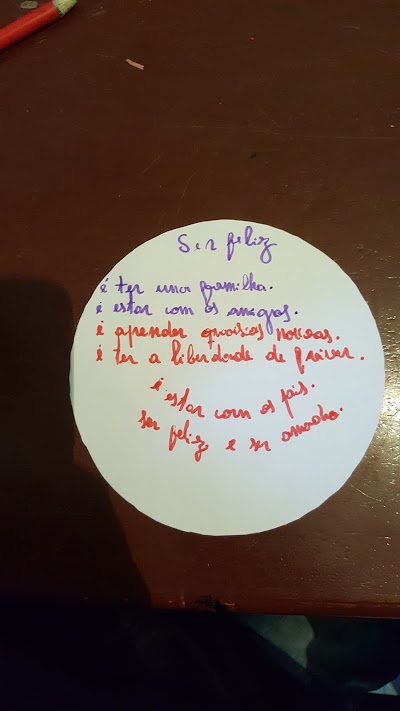 Ser feliz
é ter uma familha.
é estar com os amigos.
é aprender coisas novas.
é ter a liberdade de
é estar com os pais.
ser feliz é ser amado.